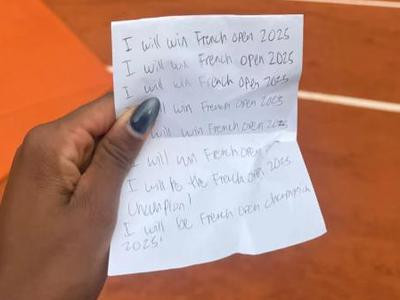 I will win French open 2025
I will win French open 2025
I will win French open 2025
will win French open 2025
will win French open 2025
I will win French open
I will be the French open 2025
Champion!
I will be French open champion
2025!